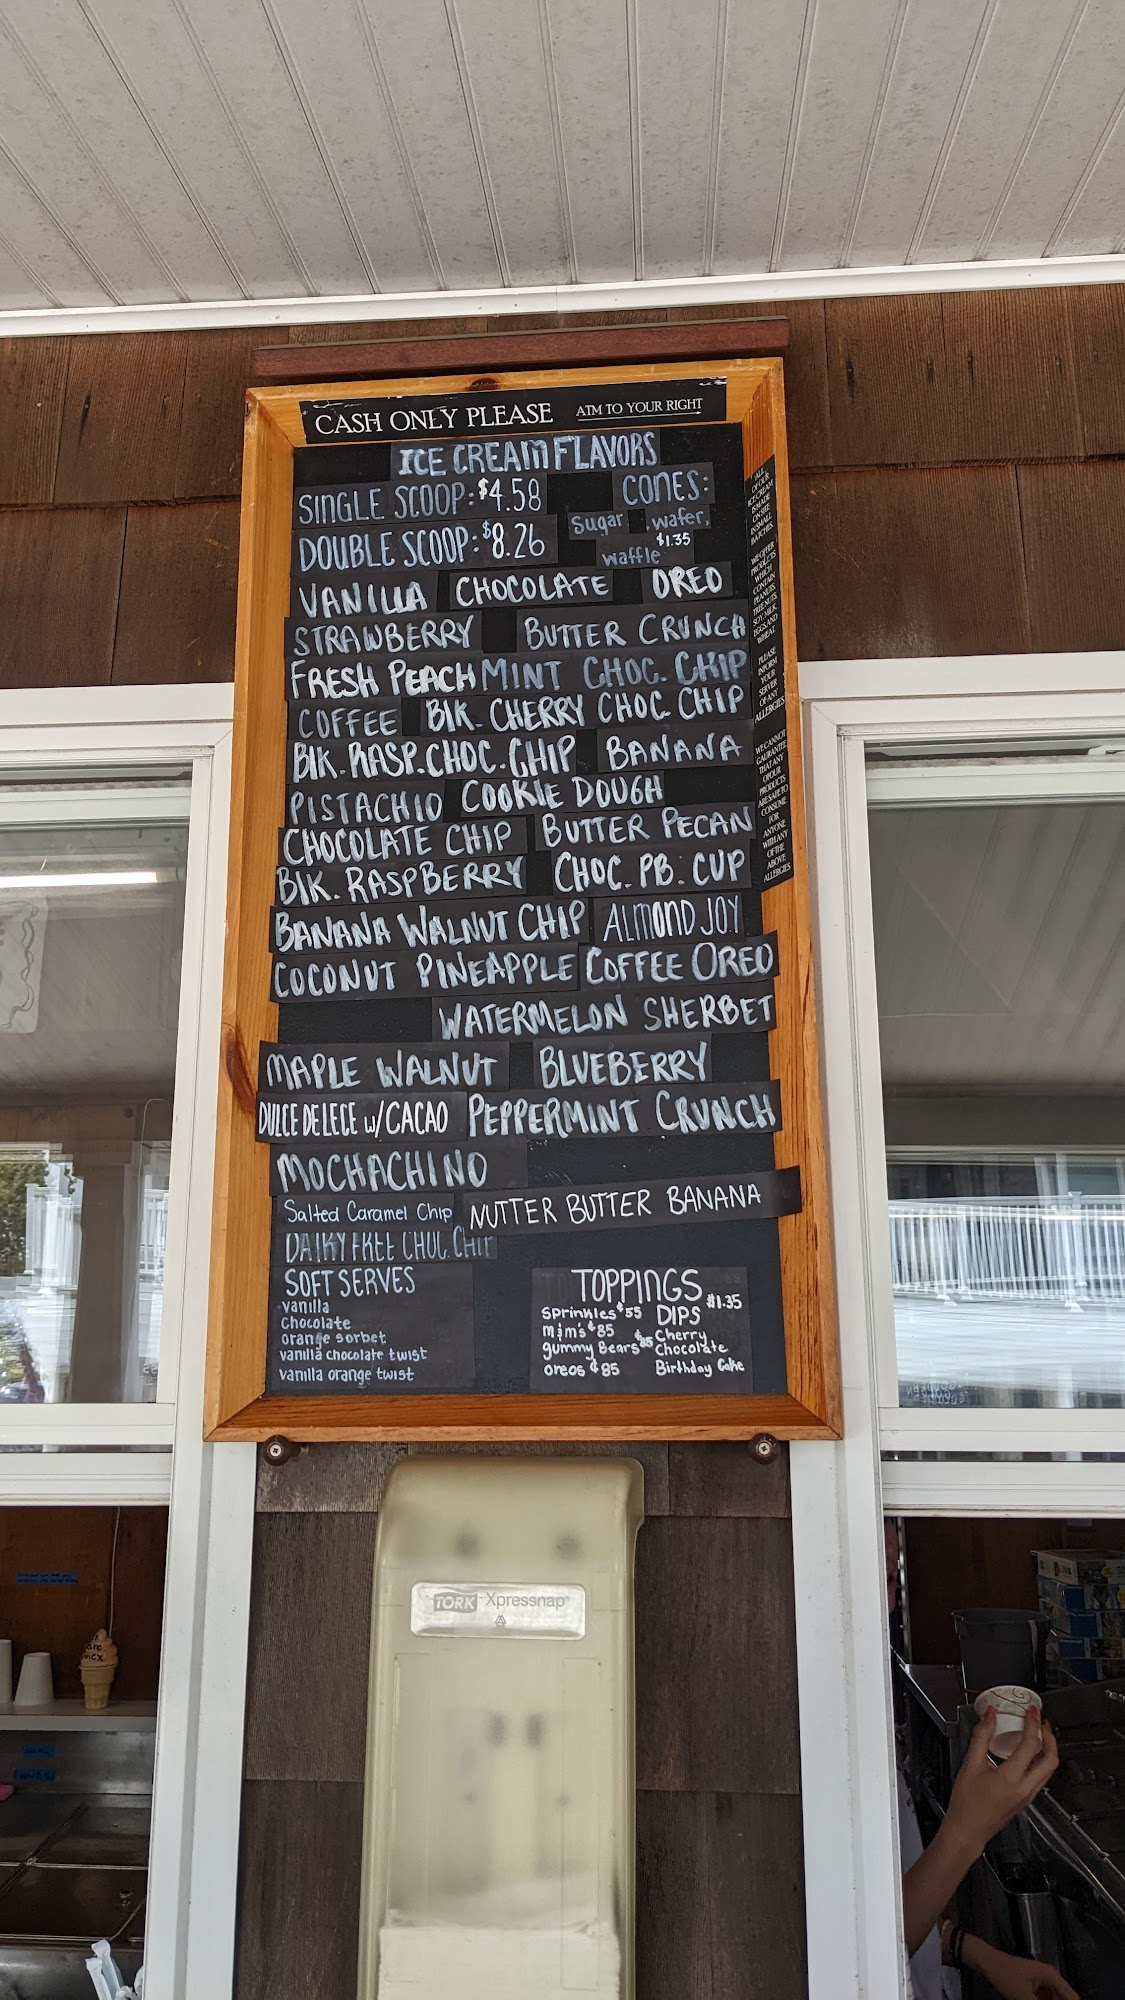 CASH ONLY PLEASE ATM TO YOUR RIGHT
ICE CREAM FLAVORS
SINGLE SCOOP: $4.58
DOUBLE SCOOP: $8.26
CONES:
Sugar, wafer,
waffle $1.35
VANILLA CHOCOLATE OREO
STRAWBERRY BUTTER CRUNCH
FRESH PEACH MINT CHOC. CHIP
COFFEE BLK. CHERRY CHOC. CHIP
BLK. RASP. CHOC. CHIP BANANA
PISTACHIO COOKIE DOUGH
CHOCOLATE CHIP BUTTER PECAN
BLK. RASPBERRY CHOC. PB. CUP
BANANA WALNUT CHIP ALMOND JOY
COCONUT PINEAPPLE COFFEE OREO
WATERMELON SHERBET
MAPLE WALNUT BLUEBERRY
DULCE DE LECE w/CACAO PEPPERMINT CRUNCH
MOCHACHINO
Salted Caramel Chip NUTTER BUTTER BANANA
DAIRY FREE CHOC. CHIP
SOFT SERVES
vanilla
Chocolate
orange sorbet
vanilla chocolate twist
vanilla orange twist
TOPPINGS
Sprinkles ¢55
m&m's ¢85
gummy Bears ¢85
oreos ¢85
DIPS $1.35
Cherry
Chocolate
Birthday Cake
ALL
OF OUR
ICE CREAM
IS MADE
ON SITE
IN SMALL
BATCHES.
WE OFFER
PRODUCTS
WHICH
CONTAIN
PEANUTS,
TREE NUTS,
SOY, MILK,
EGGS, AND
WHEAT.
PLEASE
INFORM
YOUR
SERVER
OF ANY
ALLERGIES
WE CANNOT
GAURANTEE
THAT ANY
OF OUR
PRODUCTS
ARE SAFE TO
CONSUME
FOR
ANYONE
WITH ANY
OF THE
ABOVE
ALLERGIES
TORK Xpressnap